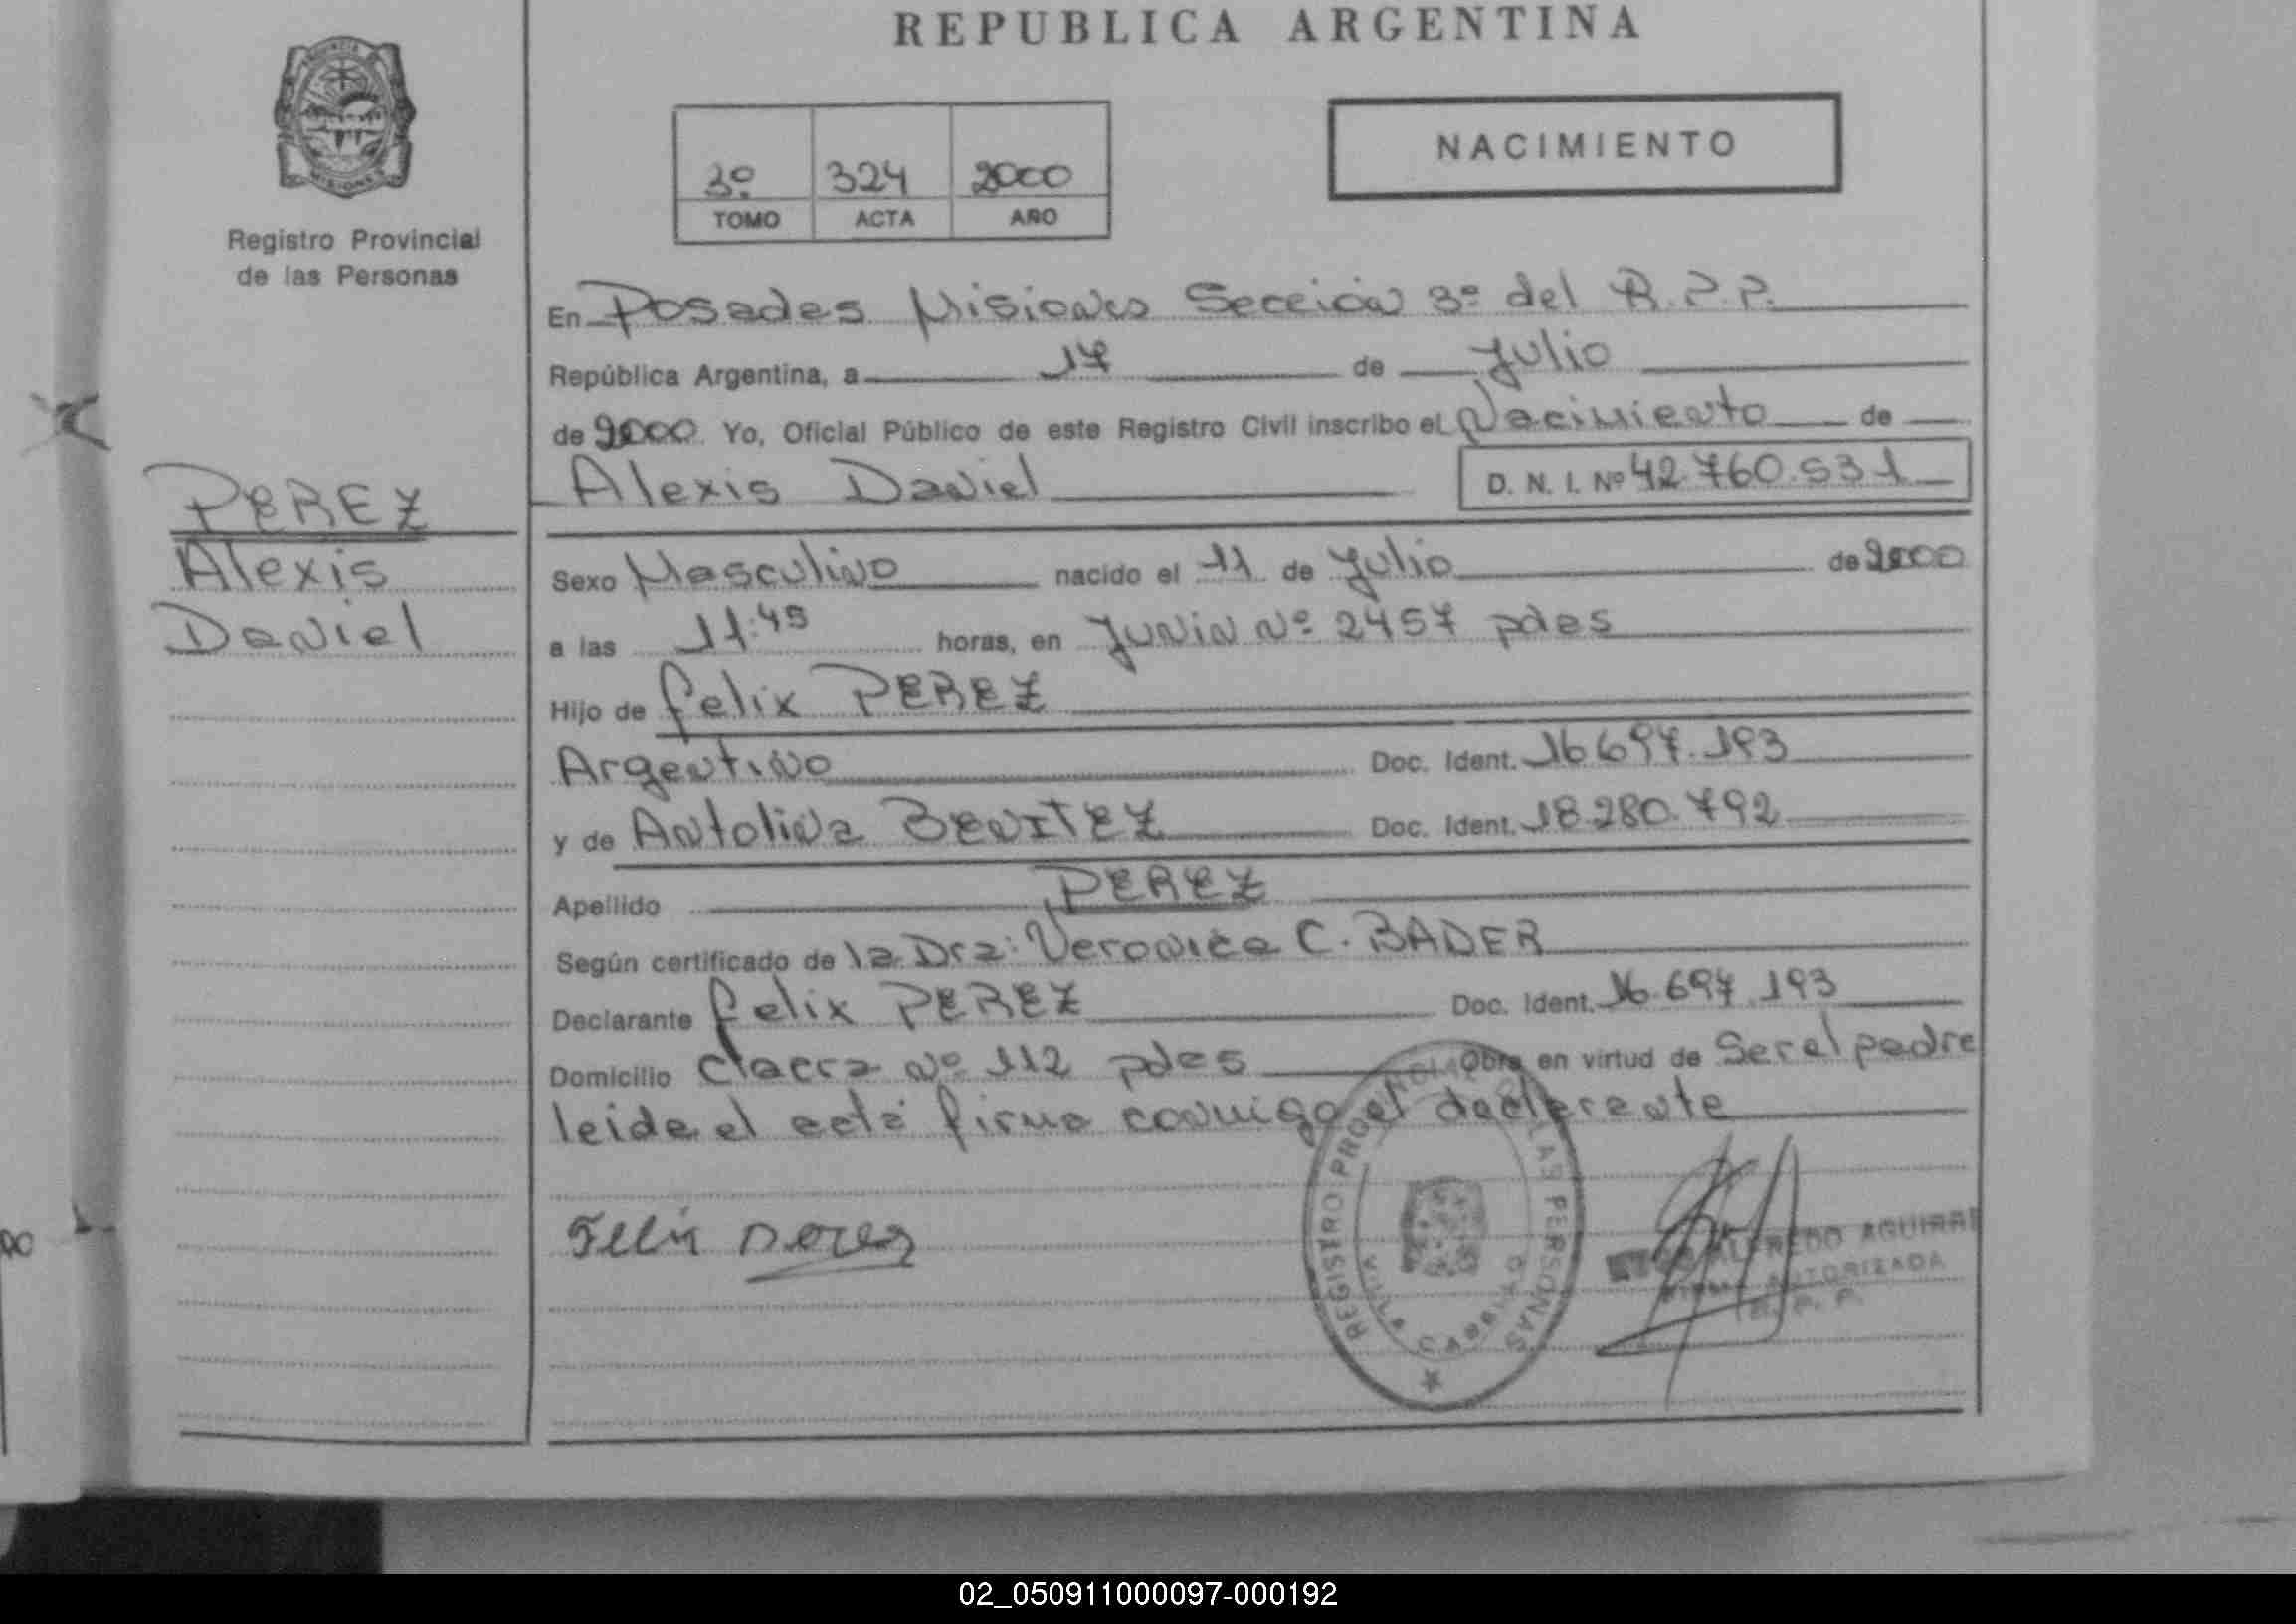 REPUBLICA ARGENTINA
NACIMIENTO
3º 324 2000
TOMO ACTA AÑO
MISIONES
Registro Provincial
de las Personas
En Posadas Misiones Sección 3º del R.P.P.
República Argentina, a 17 de Julio
de 2000 Yo, Oficial Público de este Registro Civil inscribo el Nacimiento de
Alexis Daniel D. N. I. Nº 42.760.531
PEREZ
Alexis
Daniel
Sexo Masculino nacido el 11 de Julio de 2000
a las 11:45 horas, en Junin Nº 2457 pdas
Hijo de Felix PEREZ
Argentino Doc. Ident. 16.697.193
y de Antolina BENITEZ Doc. Ident. 18.280.792
Apellido PEREZ
Según certificado de la Dra: Veronica C. BADER
Declarante Felix PEREZ Doc. Ident. 16.697.193
Domicilio chacra Nº 112 pdas Obra en virtud de Ser el padre
leida el acta firma conmigo el declarante
Felix Perez
REGISTRO PROVINCIAL DE LAS PERSONAS
VILLA CABELLO
ALFREDO AGUIRRE
FIRMA AUTORIZADA
R. P. P.
02_050911000097-000192